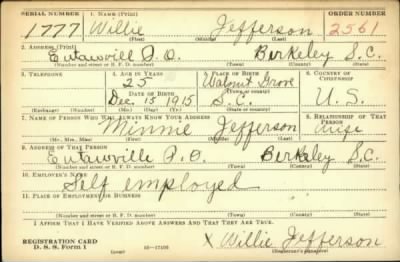 SERIAL NUMBER 1. NAME (Print) ORDER NUMBER
1777 Willie Jefferson 2561
(First) (Middle) (Last)
2. ADDRESS (Print)
Eutawvill P.O. Berkeley S.C.
(Number and street or R. F. D. number) (Town) (County) (State)
3. TELEPHONE 4. AGE IN YEARS 5. PLACE OF BIRTH 6. COUNTRY OF CITIZENSHIP
25 Walnut Grove
DATE OF BIRTH (Town or county)
Dec. 15 1915 S.C. U.S.
(Exchange) (Number) (Mo.) (Day) (Yr.) (State or country)
7. NAME OF PERSON WHO WILL ALWAYS KNOW YOUR ADDRESS 8. RELATIONSHIP OF THAT PERSON
Minnie Jefferson wife
(Mr., Mrs., Miss) (First) (Middle) (Last)
9. ADDRESS OF THAT PERSON
Eutawville P.O. Berkeley S.C.
(Number and street or R. F. D. number) (Town) (County) (State)
10. EMPLOYER'S NAME
Self employed
11. PLACE OF EMPLOYMENT OR BUSINESS
(Number and street or R. F. D. number) (Town) (County) (State)
I AFFIRM THAT I HAVE VERIFIED ABOVE ANSWERS AND THAT THEY ARE TRUE.
REGISTRATION CARD
D. S. S. Form 1 16-17105 X Willie Jefferson
(Registrant's signature)